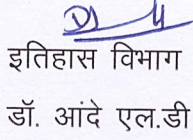 इतिहास विभाग
डॉ. आंदे एल.डी